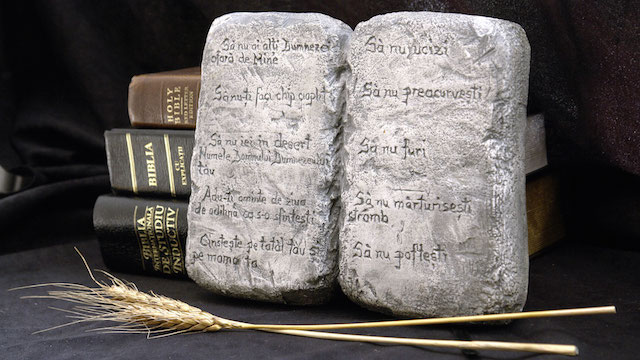 HOLY
BIBLE
BIBLIA
CU
EXPLICAȚII
BIBLIA
DE STUDIU
INDUCTIV
Să nu ai alți Dumnezei
afară de Mine
Să nu-ți faci chip cioplit
Să nu iei în deșert
Numele Domnului Dumnezeului
tău
Adu-ți aminte de ziua
de odihnă ca s-o sfințești
Cinstește pe tatăl tău și
pe mama ta
Să nu ucizi
Să nu preacurvești
Să nu furi
Să nu mărturisești
strâmb
Să nu poftești